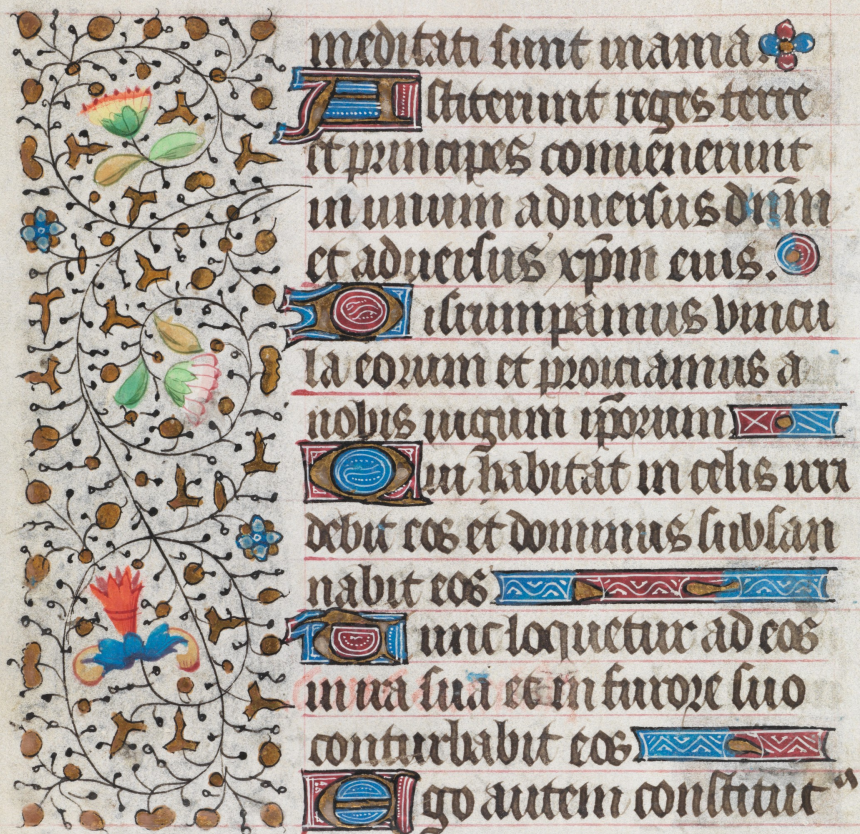 meditati sunt inania.
Astiterunt reges terre
et principes conuenerunt
in unum aduersus dn̄m
et aduersus xp̄m eius.
Disrumpamus vincu
la eorum et proiciamus a
nobis iugum ip̄orum
Qui habitat in celis irri
debit eos et dominus subsan
nabit eos
Tunc loquetur ad eos
in ira sua et in furore suo
conturbabit eos
Ego autem constitut⁹